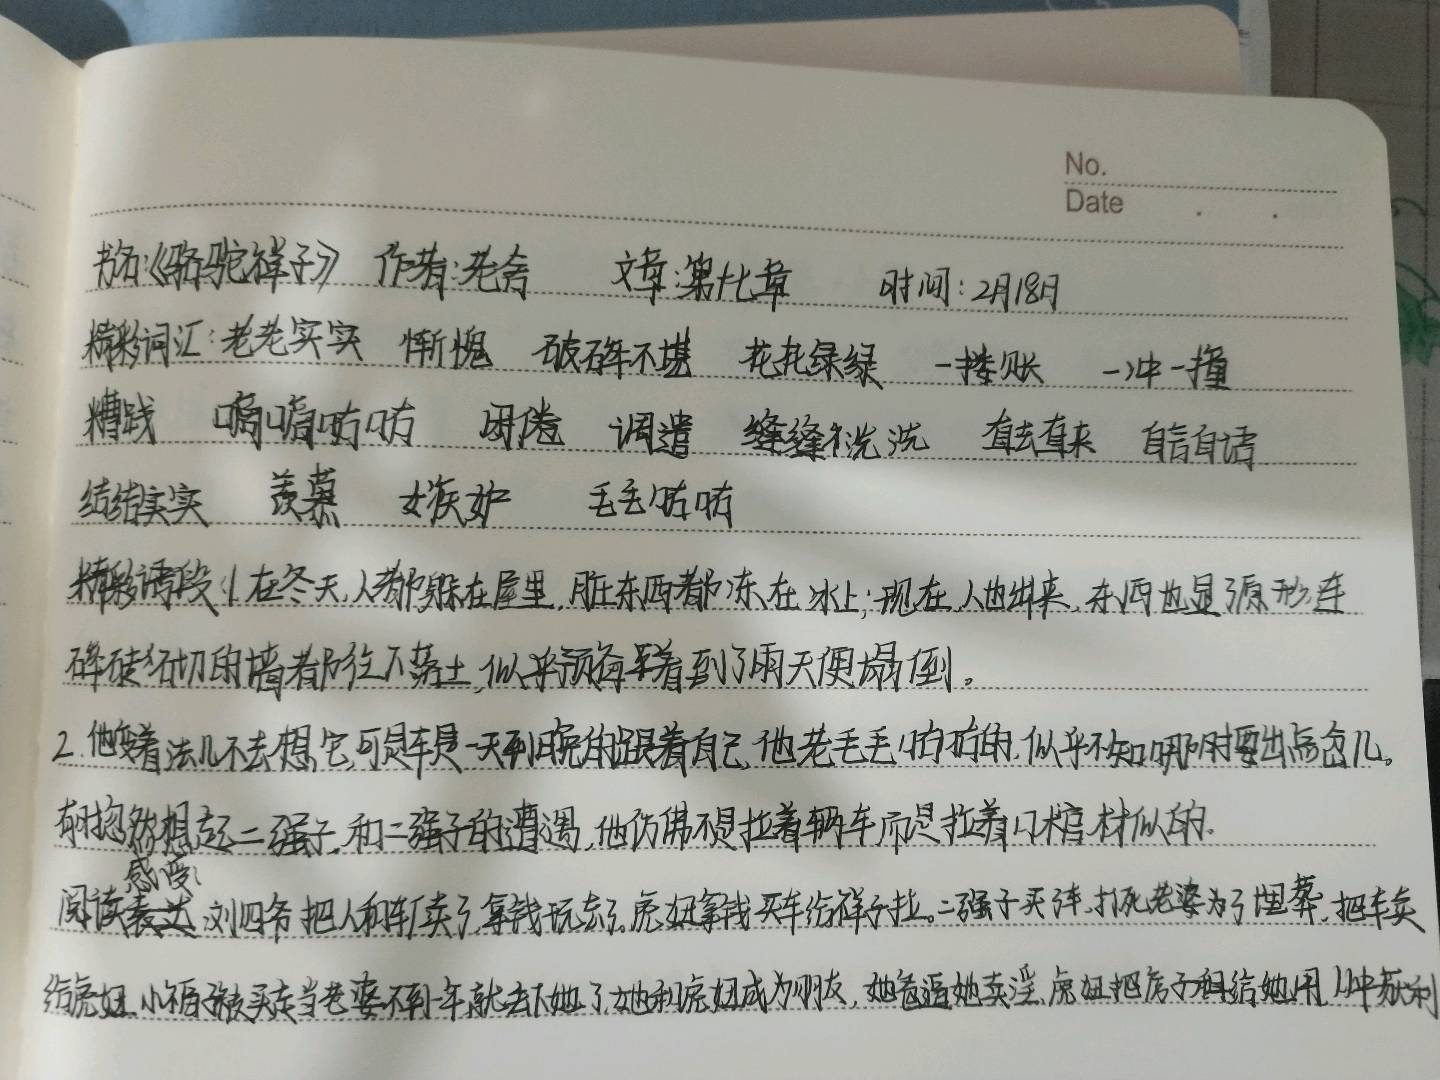 No.
Date
书名:《骆驼祥子》 作者:老舍 文章:第十七章 时间:2月18日
精彩词汇:老老实实 惭愧 破碎不堪 花花绿绿 一搂账 一冲一撞
糟践 嘀嘀咕咕 闭倦 调遣 缝缝洗洗 直去直来 自言自语
结结实实 羡慕 嫉妒 毛毛咕咕
精彩语段:1.在冬天,人都躲在屋里,脏东西都冻在冰上;现在,人也出来,东西也显了原形,连
碎砖砌的墙都往下落土,似乎预备着到了雨天便塌倒。
2.他变着法儿不去想它,可是车是一天到晚的跟着自己,他老毛毛咕咕的,似乎不知哪时要出点岔儿。
有时忽然想起二强子,和二强子的遭遇,他仿佛不是拉着辆车而是拉着口棺材似的.
感受:
阅读 刘四爷把人和车厂卖了,拿钱玩去了。虎妞拿钱买车给祥子拉。二强子买了车,打死老婆为了埋葬,把车卖
给虎妞.小福子被买去当老婆不到一年,就丢下她了,她和虎妞成为朋友,她爸逼她卖淫,虎妞把房子租给她用,从中获利